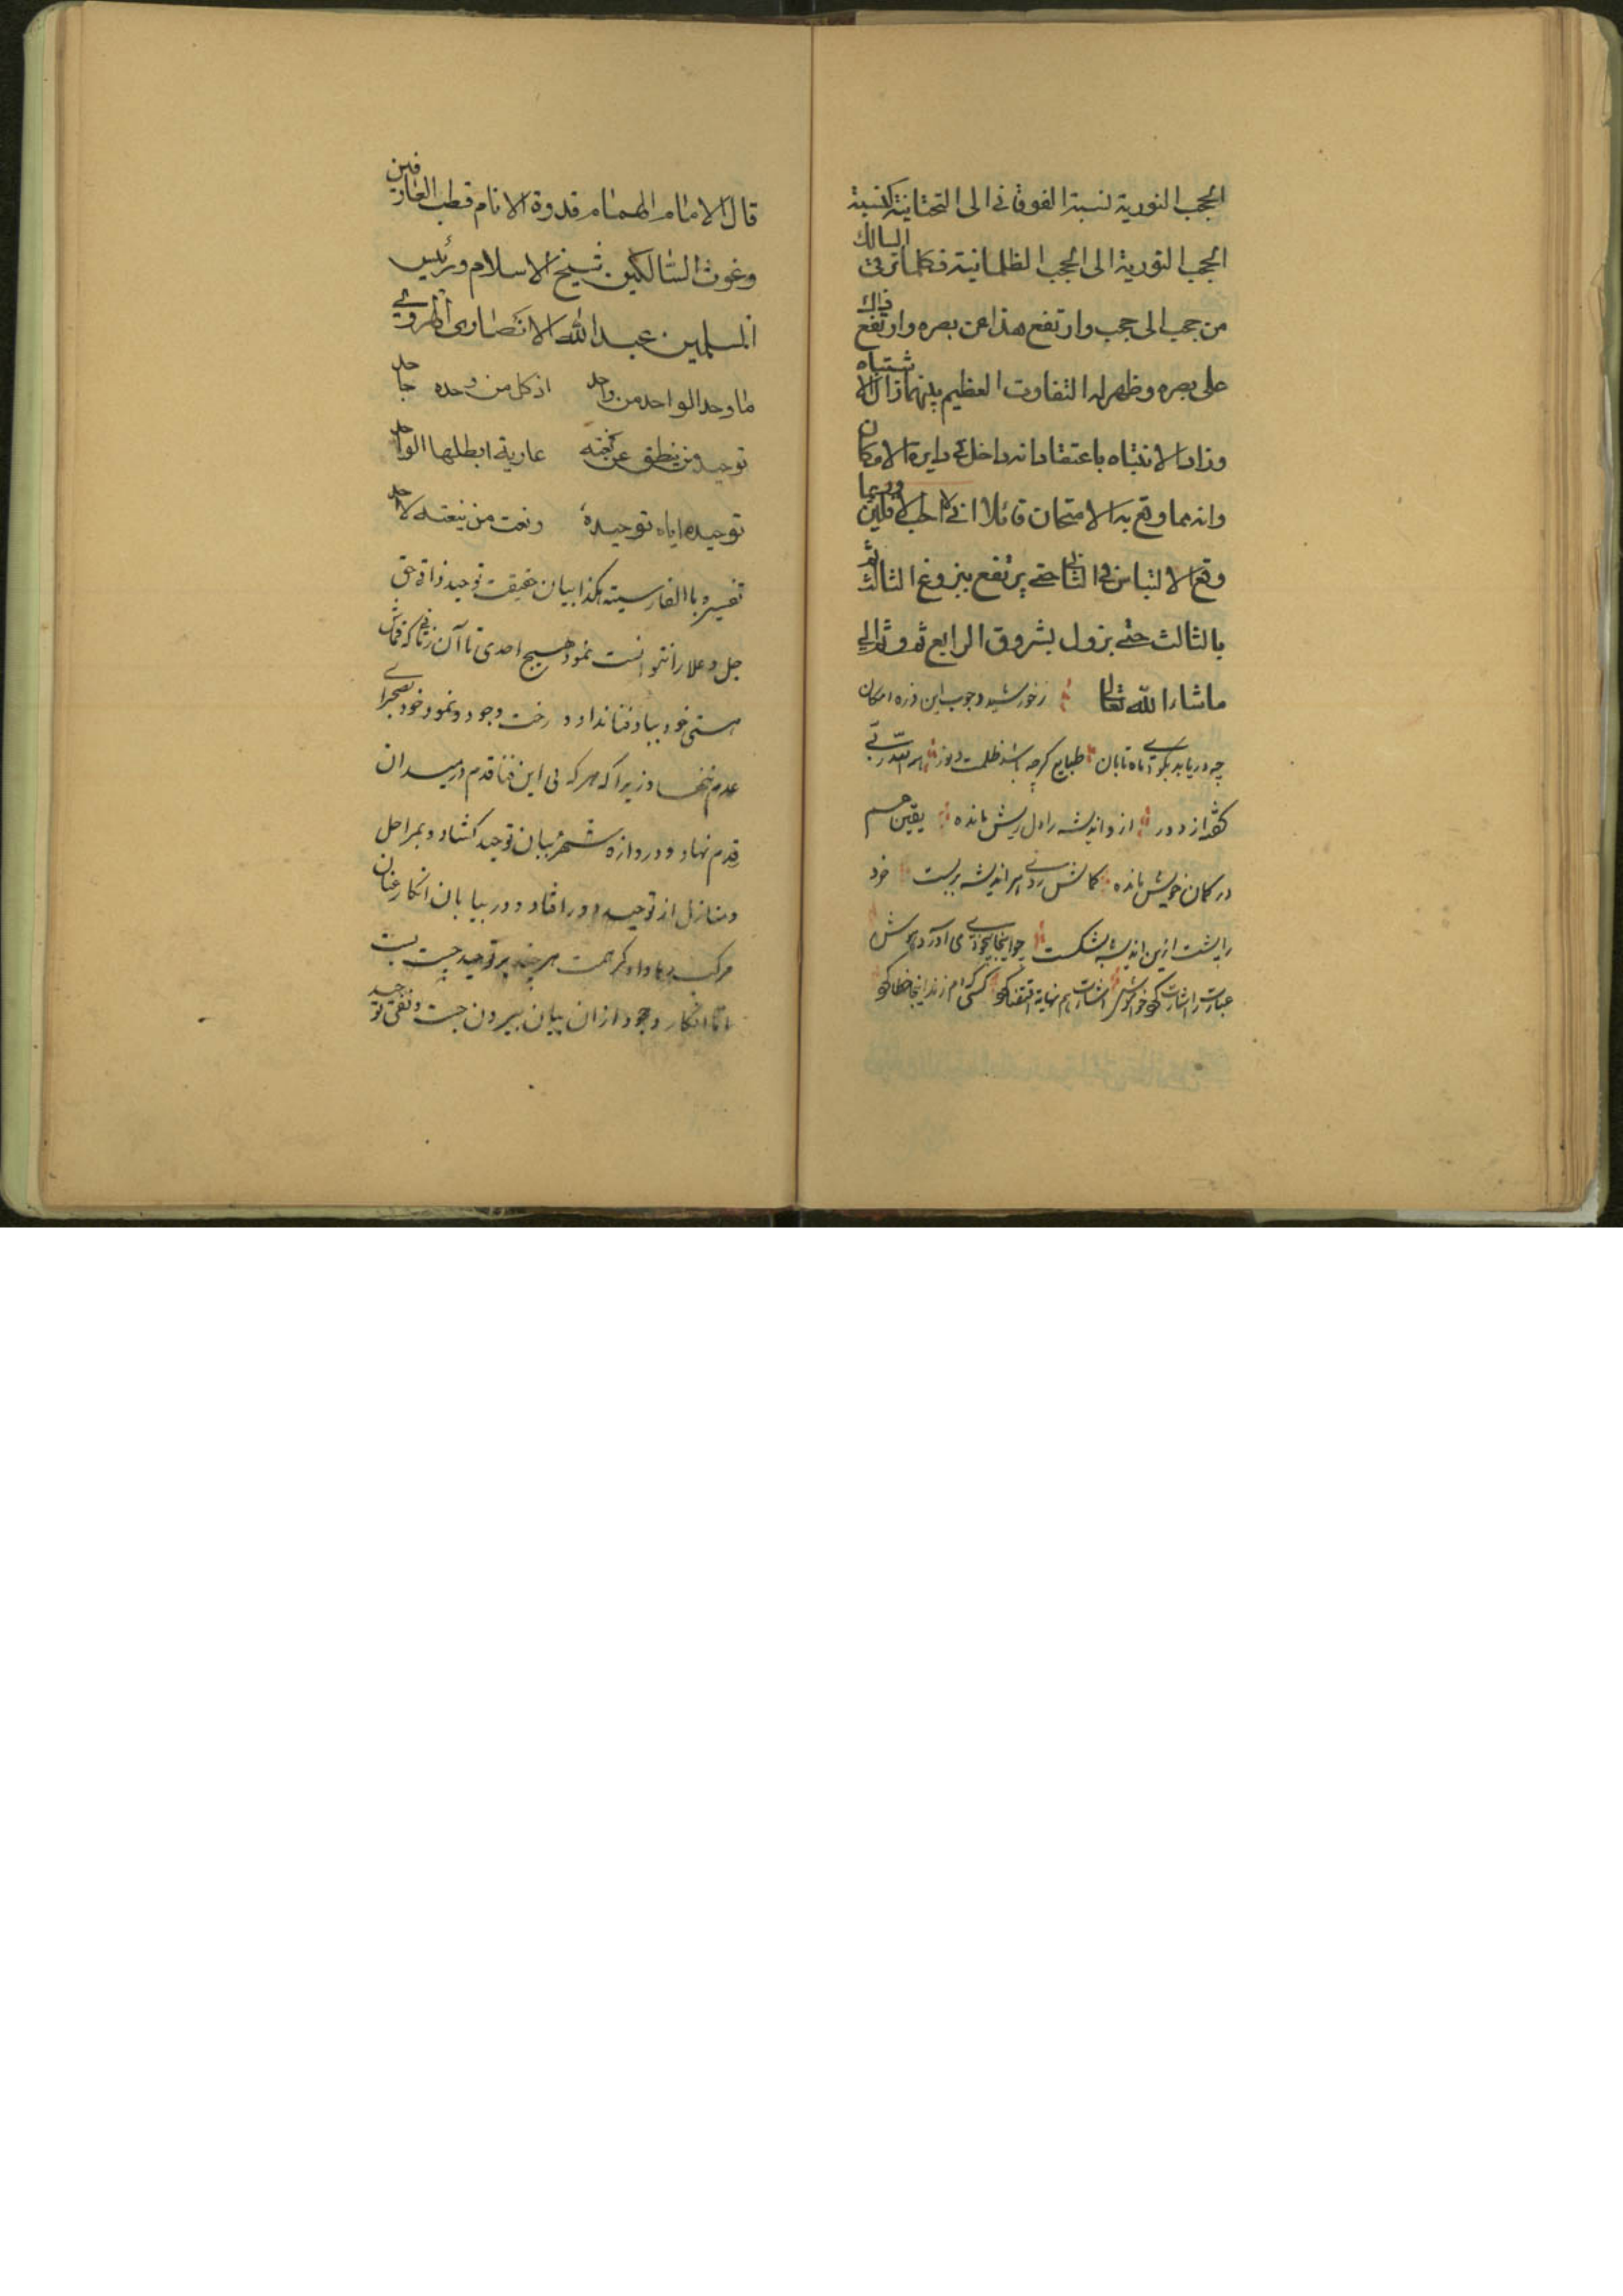 الحجب النورية لنسبة الفوقاني الى التحتانية كنسبة
الحجب النورية الى الحجب الظلمانية فكلما ترقى السالك
من حجب الى حجب وارتفع هذا عن بصره وارتفع ذاك
على بصره وظهر له التفاوت العظيم بينهما زال الاشتباه
وزاد الانتباه باعتقاد انه داخل في دايرة الامكان
وانه مما وقع به الامتحان قائلا اني لا احب الافلين وربما
وقع الالتباس في الثاني حتى يرتفع ببزوغ الثالث ثم
بالثالث حتى يزول بشروق الرابع ثم وثم الى
ماشاء الله تعالى ز خورشيد وجوب اين ذره امكان
چه دريابد بگو اى ماه تابان طبايع گرچه باشد ظلمت ونور
از دور از و انديشه را دل ريش مانده يقين هم
در گمان خويش مانده كمانش بر انديشه بربست خرد
را پشت ازين انديشه بشكست چو اينجا بيخودى مى آرد هوش
عبارت را اشارت گو اشارت هم كسى كم زند اينجا خطا گو
قال الامام الهمام قدوة الانام قطب العارفين
وغوث السالكين شيخ الاسلام ورئيس
المسلمين عبد الله الانصارى الهروي
ما وحد الواحد من واحد اذ كل من وحده جاحد
توحيد من ينطق عن نعته عارية ابطلها الواحد
توحيده اياه توحيده ونعت من ينعته لاحد
تفسيره باالفارسية هكذا بيان حقيقت توحيد ذات حق
جل وعلا را نتوانست نمود هيچ احدى تا آن زمانى كه قماش
هستى خود بباد فنا نداد و رخت وجود و نمود خود بصحراى
عدم ننهاد زيرا كه هر كه بى اين فنا قدم در ميدان
قدم نهاد و دروازه شهر بيان توحيد كشاد و بمراحل
و منازل از توحيد دور افتاد و در بيابان انكار عنان
مركب رها داد كرهمت هر چند بر توحيد چست بست
اما انكار وجود ازان بيان بيرون جست و نفى توحيد